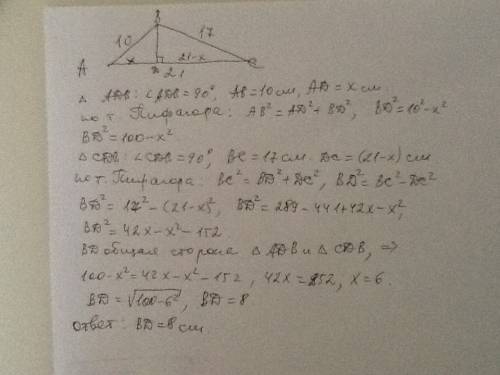 B
10 17
A x D 21-x C
21
△ ADB: ∠ADB=90°, AB=10см, AD=x см.
по т. Пифагора: AB²=AD²+BD², BD²=10²-x²
BD²=100-x²
△ CDB: ∠CDB=90°, BC=17см. DC=(21-x) см
по т. Пифагора: BC²=BD²+DC², BD²=BC²-DC²
BD²=17²-(21-x)², BD²=289-441+42x-x²,
BD²=42x-x²-152
BD общая сторона △ ADB и △ CDB, ⇒
100-x²=42x-x²-152, 42x=252, x=6.
BD=√100-6², BD=8
ответ: BD=8см.